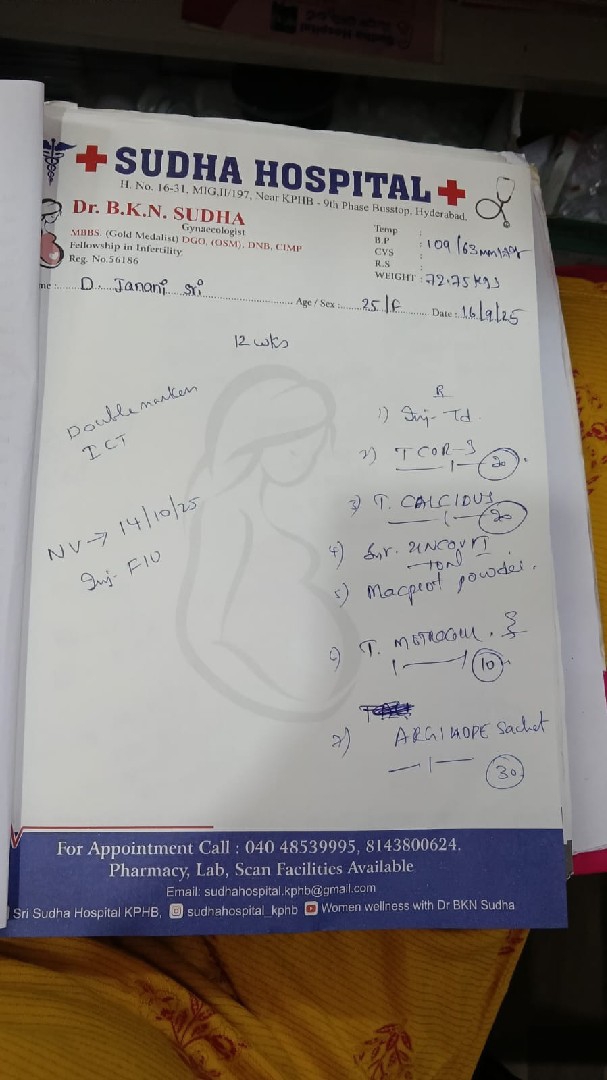 SUDHA HOSPITAL
H. No. 16-31, MIG,II/197, Near KPHB - 9th Phase Busstop, Hyderabad.
Dr. B.K.N. SUDHA
Gynaecologist
MBBS. (Gold Medalist) DGO, (OSM). DNB, CIMP
Fellowship in Infertility
Reg. No.56186
Temp :
B.P : 109/63 mmHg
CVS :
R.S :
WEIGHT : 72.75 kgs
me : D. Janani Sri Age / Sex : 25/F Date : 16/9/25
12 wks
Double marker
ICT
NV → 14/10/25
Inj- FIU
R
1) Inj- Td
2) T COR-S
— 1 — 30
3) T. CALCIDUS
— 1 — 30
4) Syr.
5) powder.
6) T.
1 — 1 10
7) ARGIHOPE Sachet
— 1 — 30
For Appointment Call : 040 48539995, 8143800624.
Pharmacy, Lab, Scan Facilities Available
Email: sudhahospital.kphb@gmail.com
Sri Sudha Hospital KPHB, sudhahospital_kphb Women wellness with Dr BKN Sudha